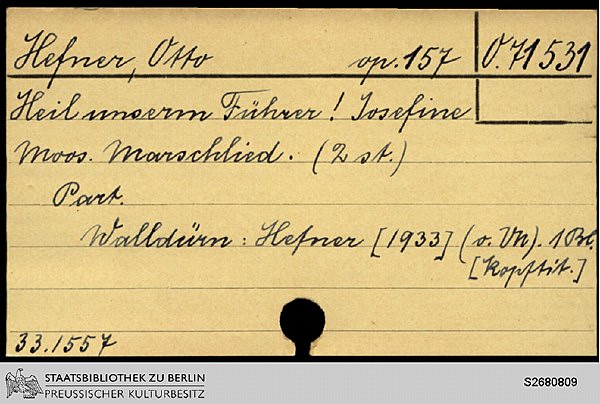 Hefner, Otto op. 157 O. 71531
Heil unserm Führer! Josefine
Moos. Marschlied. (2 st.)
Part.
Walldürn: Hefner [1933] (o. Vn). 1 Bl.
[Kopftit.]
33.1557
STAATSBIBLIOTHEK ZU BERLIN
PREUSSISCHER KULTURBESITZ
S2680809